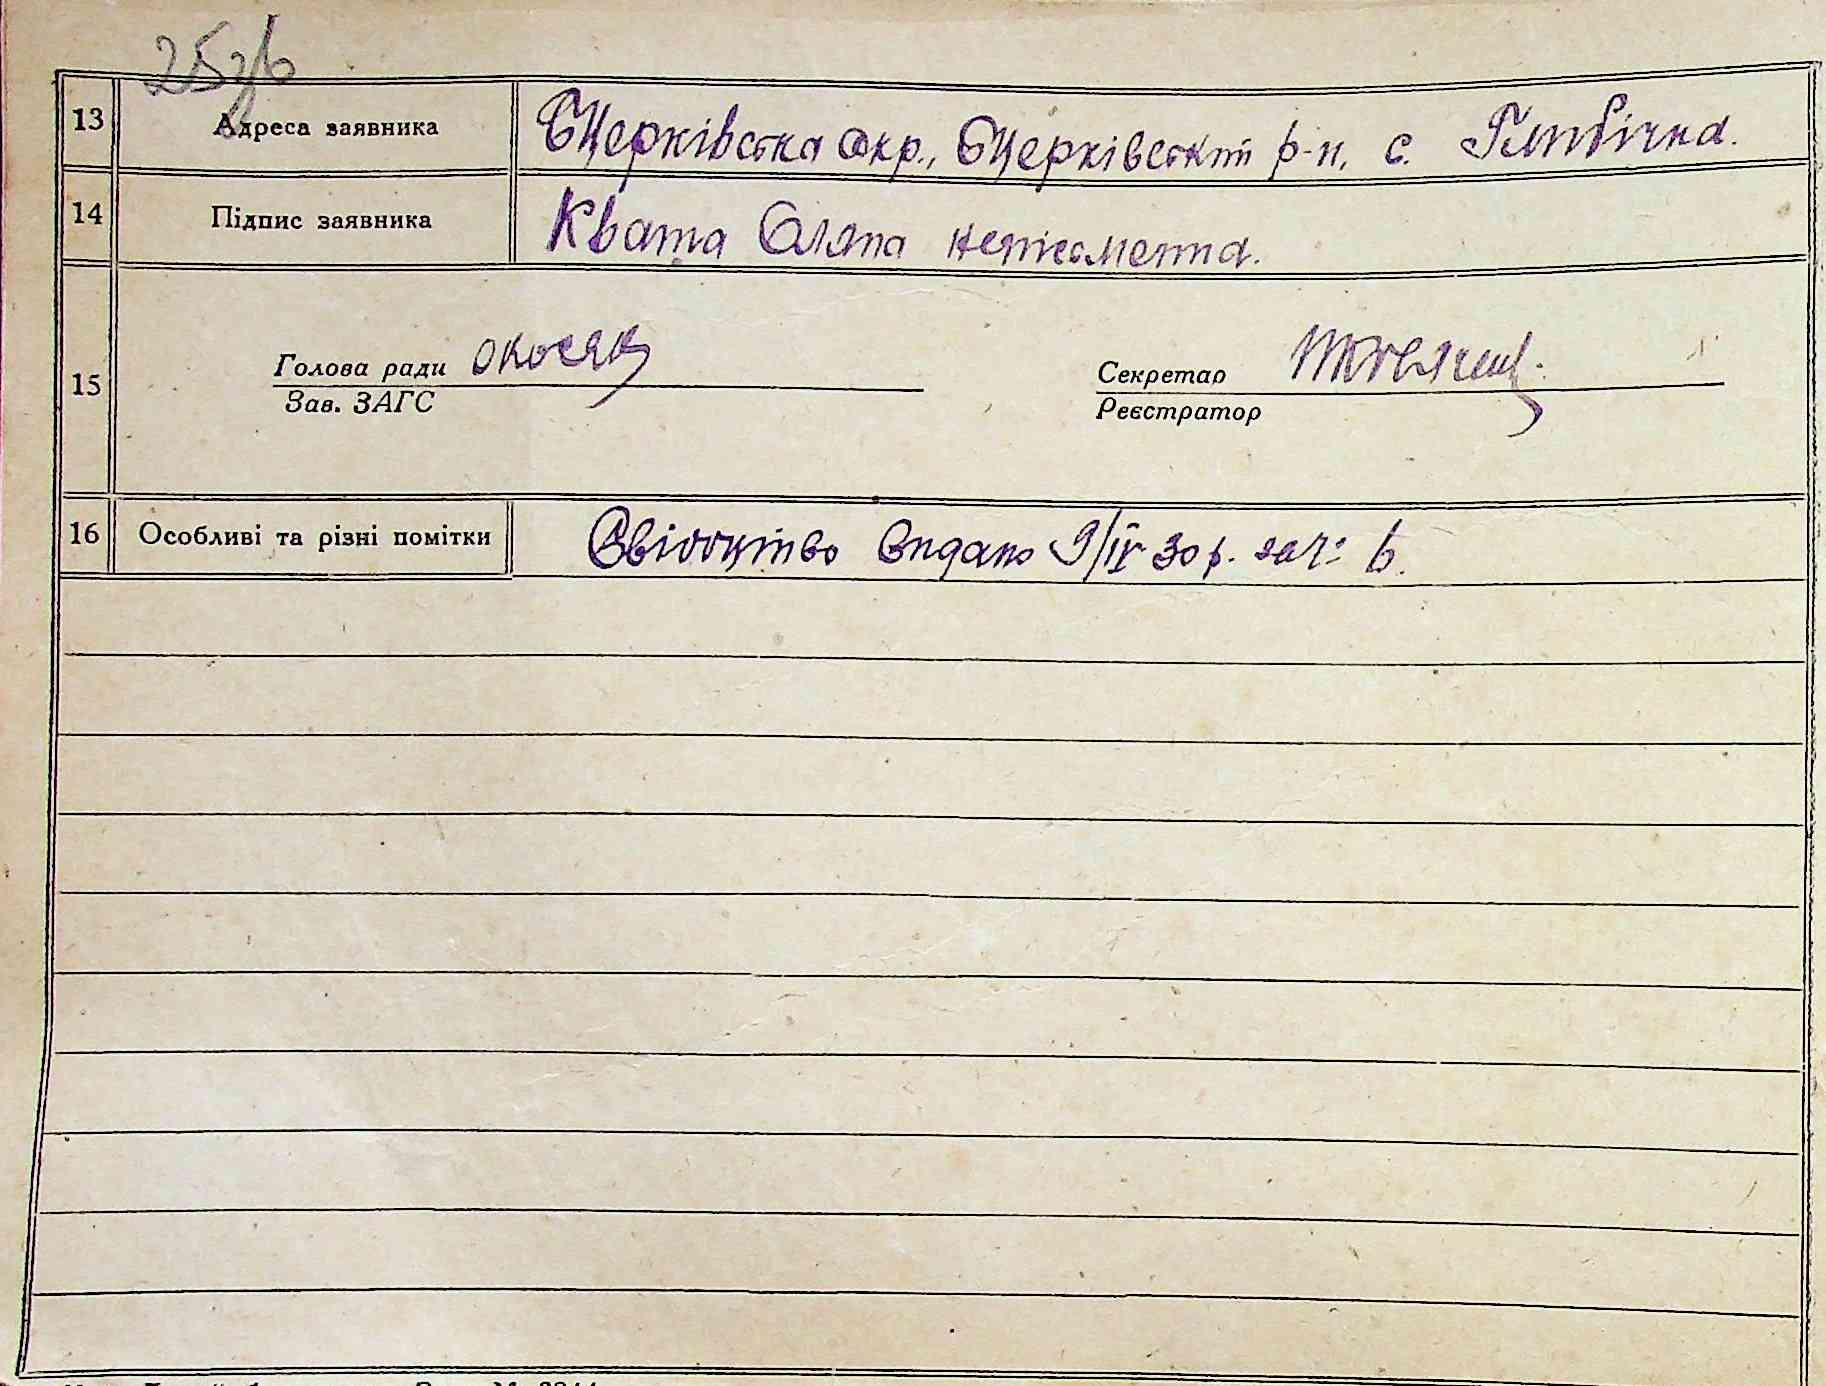 25зв
13 Адреса заявника БЦерківська окр., БЦерківський р-н, с. Глибічка.
14 Підпис заявника Квата Оляна неписьменна.
15 Голова ради
Зав. ЗАГС
Секретар
Реєстратор
16 Особливі та різні помітки Свідоцтво видано 9/IV 30 р. за ч: 6.